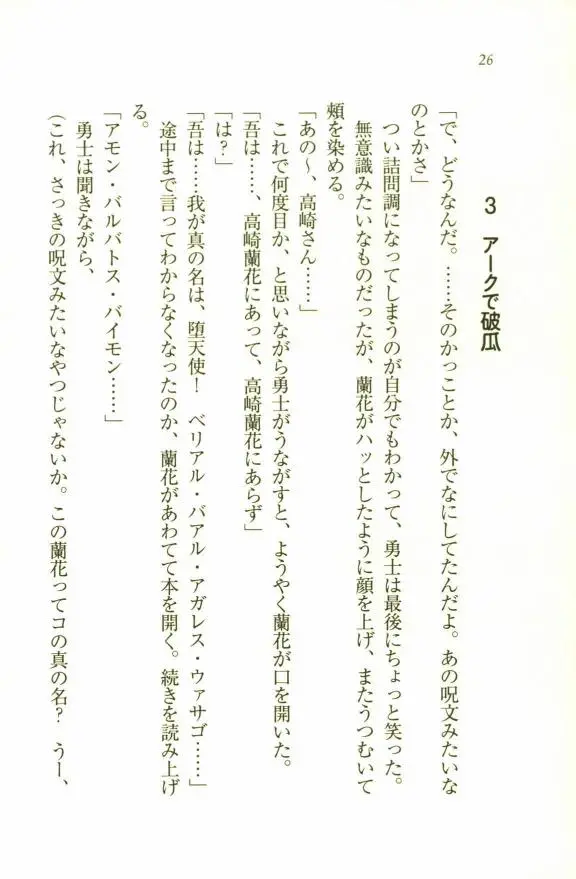 26
3 アークで破瓜
「で、どうなんだ。……そのかっことか、外でなにしてたんだよ。あの呪文みたいな
のとかさ」
つい詰問調になってしまうのが自分でもわかって、勇士は最後にちょっと笑った。
無意識みたいなものだったが、蘭花がハッとしたように顔を上げ、またうつむいて
頰を染める。
「あの〜、高崎さん……」
これで何度目か、と思いながら勇士がうながすと、ようやく蘭花が口を開いた。
「吾は……、高崎蘭花にあって、高崎蘭花にあらず」
「は？」
「吾は……我が真の名は、堕天使！　ベリアル・バアル・アガレス・ウァサゴ……」
途中まで言ってわからなくなったのか、蘭花があわてて本を開く。続きを読み上げ
る。
「アモン・バルバトス・バイモン……」
勇士は聞きながら、
（これ、さっきの呪文みたいなやつじゃないか。この蘭花ってコの真の名？　うー、